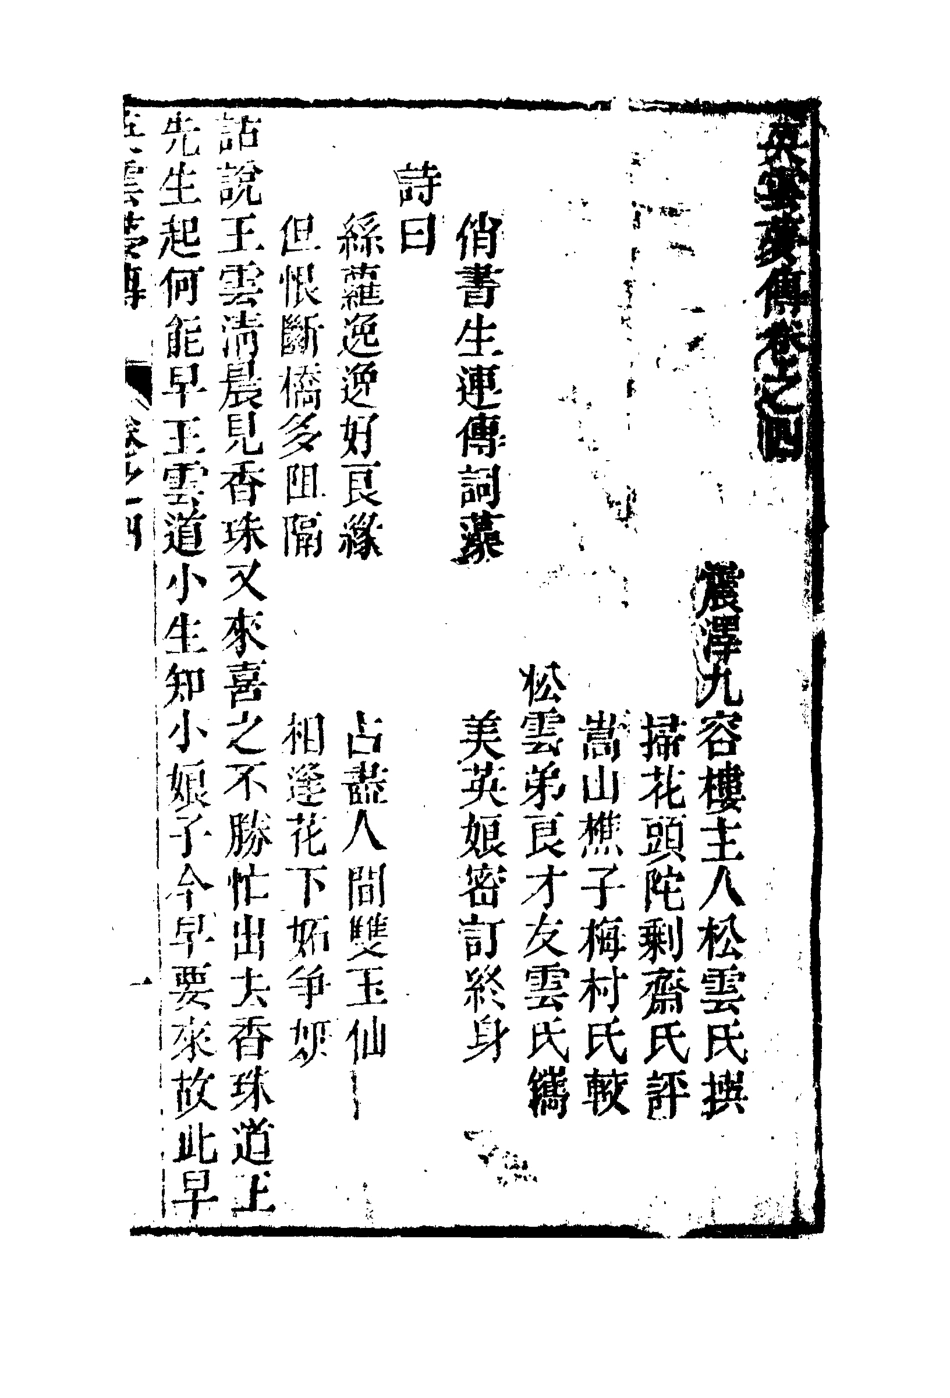 英雲夢傳卷之四
震澤九容樓主人松雲氏撰
掃花頭陀剩齋氏評
嵩山樵子梅村氏較
松雲弟良才友雲氏鐫
俏書生連傳詞藻 美英娘密訂終身
詩曰
絲蘿逸逸好良緣 占盡人間雙玉仙
但恨斷橋多阻隔 相逢花下妬爭妍
話說王雲清晨見香珠又來喜之不勝忙出去香珠道王
先生起何能早王雲道小生知小娘子今早要來故此早
英雲夢傳 卷之四 一